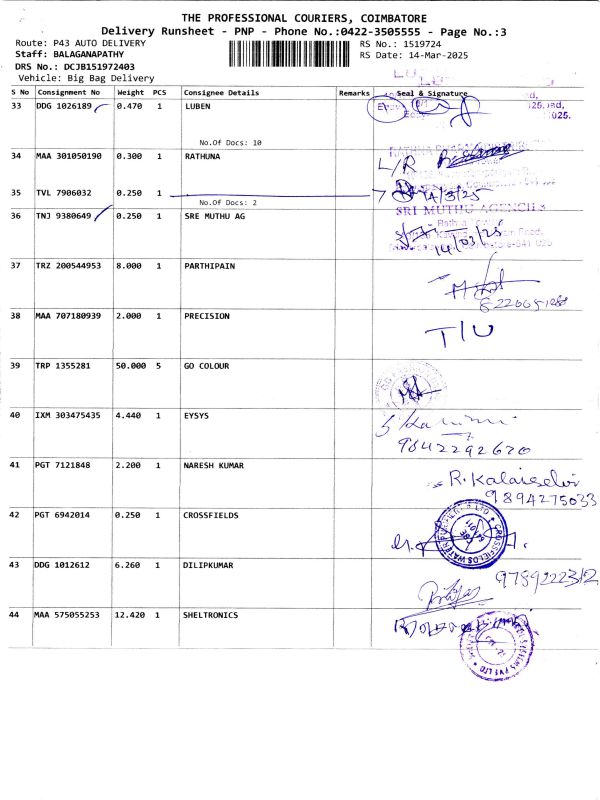 THE PROFESSIONAL COURIERS, COIMBATORE
Delivery Runsheet - PNP - Phone No.:0422-3505555 - Page No.:3
Route: P43 AUTO DELIVERY
RS No.: 1519724
Staff: BALAGANAPATHY
RS Date: 14-Mar-2025
DRS No.: DCJB151972403
Vehicle: Big Bag Delivery
S No Consignment No Weight PCS Consignee Details Remarks Seal & Signature
33 DDG 1026189 0.470 1 LUBEN
No.Of Docs: 10
34 MAA 301050190 0.300 1 RATHUNA
L/R
35 TVL 7906032 0.250 1
No.Of Docs: 2
14/3/25
36 TNJ 9380649 0.250 1 SRE MUTHU AG
SRI MUTHU AGENCIES
14/03/25
37 TRZ 200544953 8.000 1 PARTHIPAIN
38 MAA 707180939 2.000 1 PRECISION
T/U
39 TRP 1355281 50.000 5 GO COLOUR
40 IXM 303475435 4.440 1 EYSYS
9842292620
41 PGT 7121848 2.200 1 NARESH KUMAR
R. Kalaiselvi
9894275033
42 PGT 6942014 0.250 1 CROSSFIELDS
CROSSFIELDS WATER
43 DDG 1012612 6.260 1 DILIPKUMAR
9789222312
44 MAA 575055253 12.420 1 SHELTRONICS